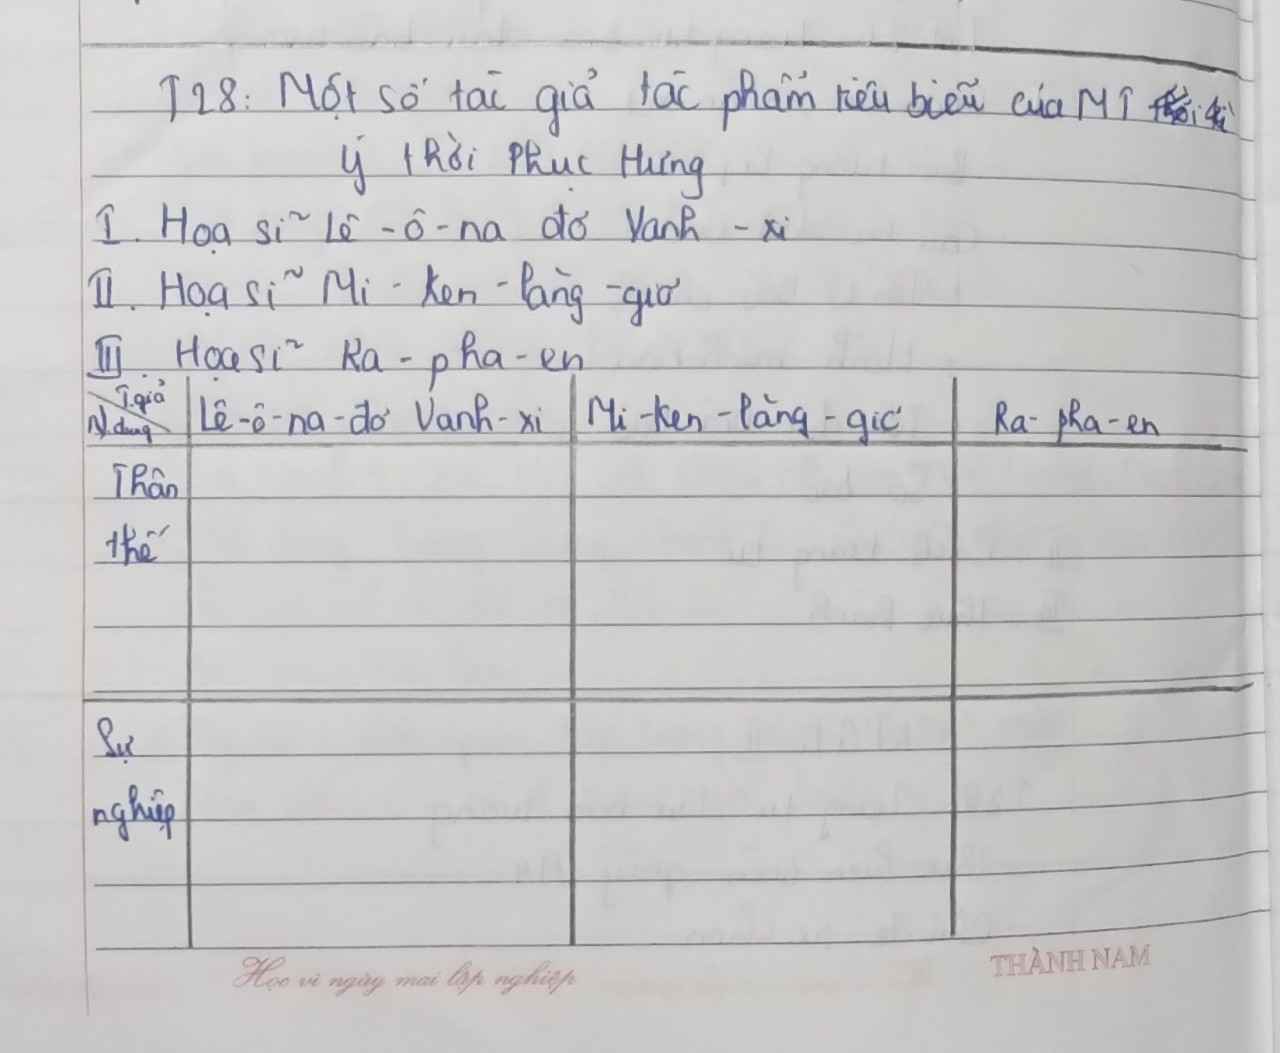 T28: Một số tác giả tác phẩm tiêu biểu của MT
Ý thời Phục Hưng
I. Họa sĩ Lê-ô-na đơ Vanh-xi
II. Họa sĩ Mi-ken-lăng-giơ
III. Họa sĩ Ra-pha-en
T.giả
N.dung
Lê-ô-na-đơ Vanh-xi
Mi-ken-lăng-giơ
Ra-pha-en
Thân
thế
Sự
nghiệp
Học vì ngày mai lập nghiệp
THÀNH NAM